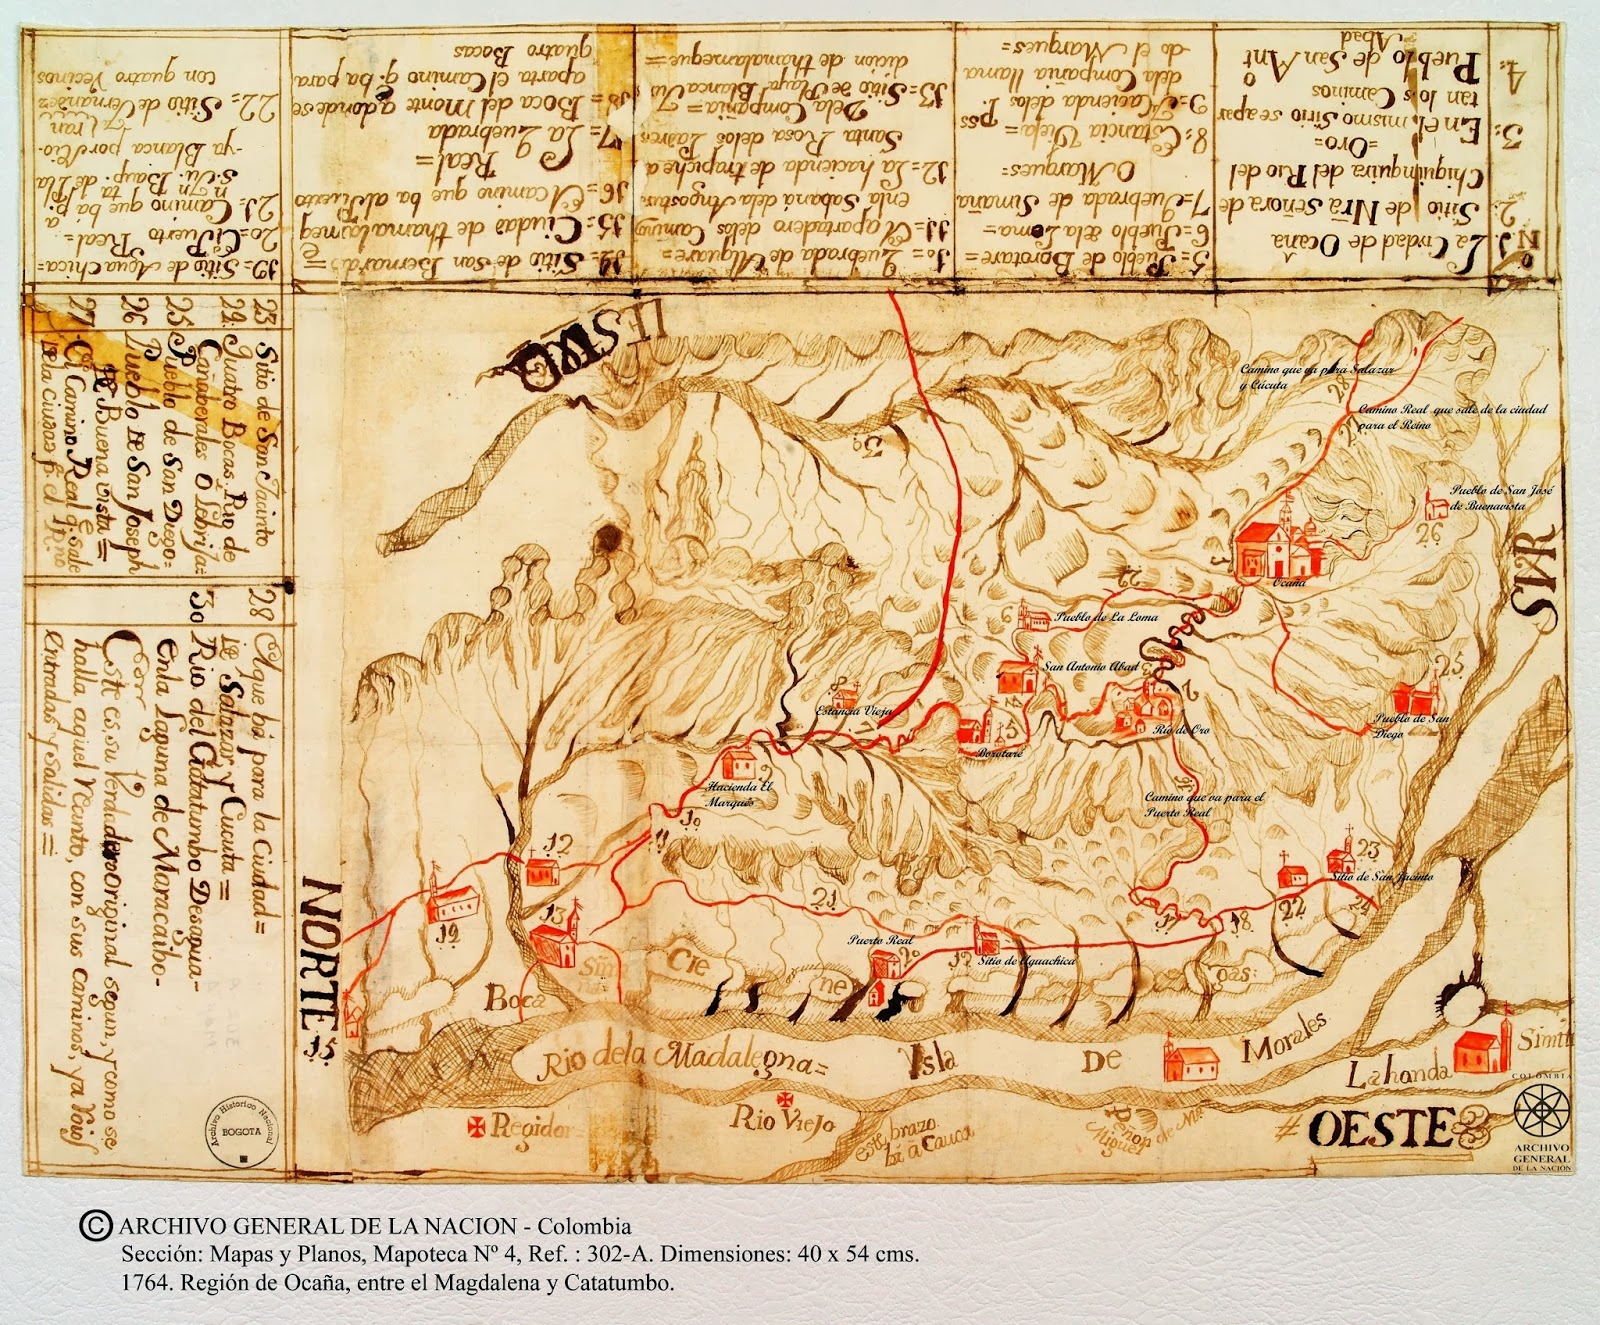 Nº 1. La Ciudad de Ocaña
2. Sitio de Nrā Señora de
Chiquinquira del Rio del
=Oro=
3. En el mismo Sitio se apar
tan los Caminos
4. Pueblo de San Antº
Abad
5= Pueblo de Borotare=
6= Pueblo de la Loma=
7= Quebrada de Simaña
O Marques=
8= Estancia Vieja=
9= Hacienda de los P. pss
de la Compañia llama
do el Marques=
10= Quebrada de Alguare=
11= El apartadero de los Caminos
en la Sabana de la Angostura
12= La hacienda de trapiche a
Santa Rosa de los Padres
De la Compañia=
13= Sitio de Playa Blanca
dicion de thamalameque=
14= Sitio de San Bernardo=
15= Ciudad de thamalameq
16= El camino que ba al Puerto
Real=
17= La Quebrada
18= Boca del Monte a donde se
aparta el Camino q. ba para
quatro Bocas
19= Sitio de Agua Chica=
20= El Puerto Real=
21= Camino que ba pª
de Pla
-ya Blanca por
22= Sitio de
con quatro Vecinos
23 Sitio de San Jacinto
24. Quatro Bocas, Rio de
Cañaberales O Lebrija=
25 Pueblo de San Diego=
26 Pueblo De San Joseph
De Buena vista=
27 El Camino Real q. Sale
De la Ciudad pª el Rno
28 El que bá para la Ciudad=
de Salazar y Cucuta=
30 Rio del Catatumbo Desagua-
en la Laguna de Maracaibo-
Este es, su Veradero Original segun, y como se
halla aquel Recinto, con sus caminos, ya
Entradas y salidas=
NORTE
SUR
OESTE
Camino que va para Salazar
y Cúcuta
28
Camino Real que sale de la ciudad
para el Reino
27
30
Pueblo de San José
de Buenavista
26
1
Ocaña
6
Pueblo de La Loma
San Antonio Abad
3
2
4
25
Pueblo de San
Diego
8
Estancia Vieja
7
5
Borotaré
Río de Oro
9
Hacienda El
Marqués
16
Camino que va para el
Puerto Real
10
11
12
23
Sitio de San Jacinto
22
24
13
14
21
17
18
Puerto Real
20
19
Sitio de Aguachica
15
Cie
ne
gas
Boca
Rio dela Madalegna=
Ysla
De
Morales
La honda
Simiti
Regidor=
Rio Viejo
este brazo
bá a Cauca
Archivo Historico Nacional
BOGOTA
COLOMBIA
ARCHIVO
GENERAL
DE LA NACIÓN
© ARCHIVO GENERAL DE LA NACION - Colombia
Sección: Mapas y Planos, Mapoteca Nº 4, Ref. : 302-A. Dimensiones: 40 x 54 cms.
1764. Región de Ocaña, entre el Magdalena y Catatumbo.